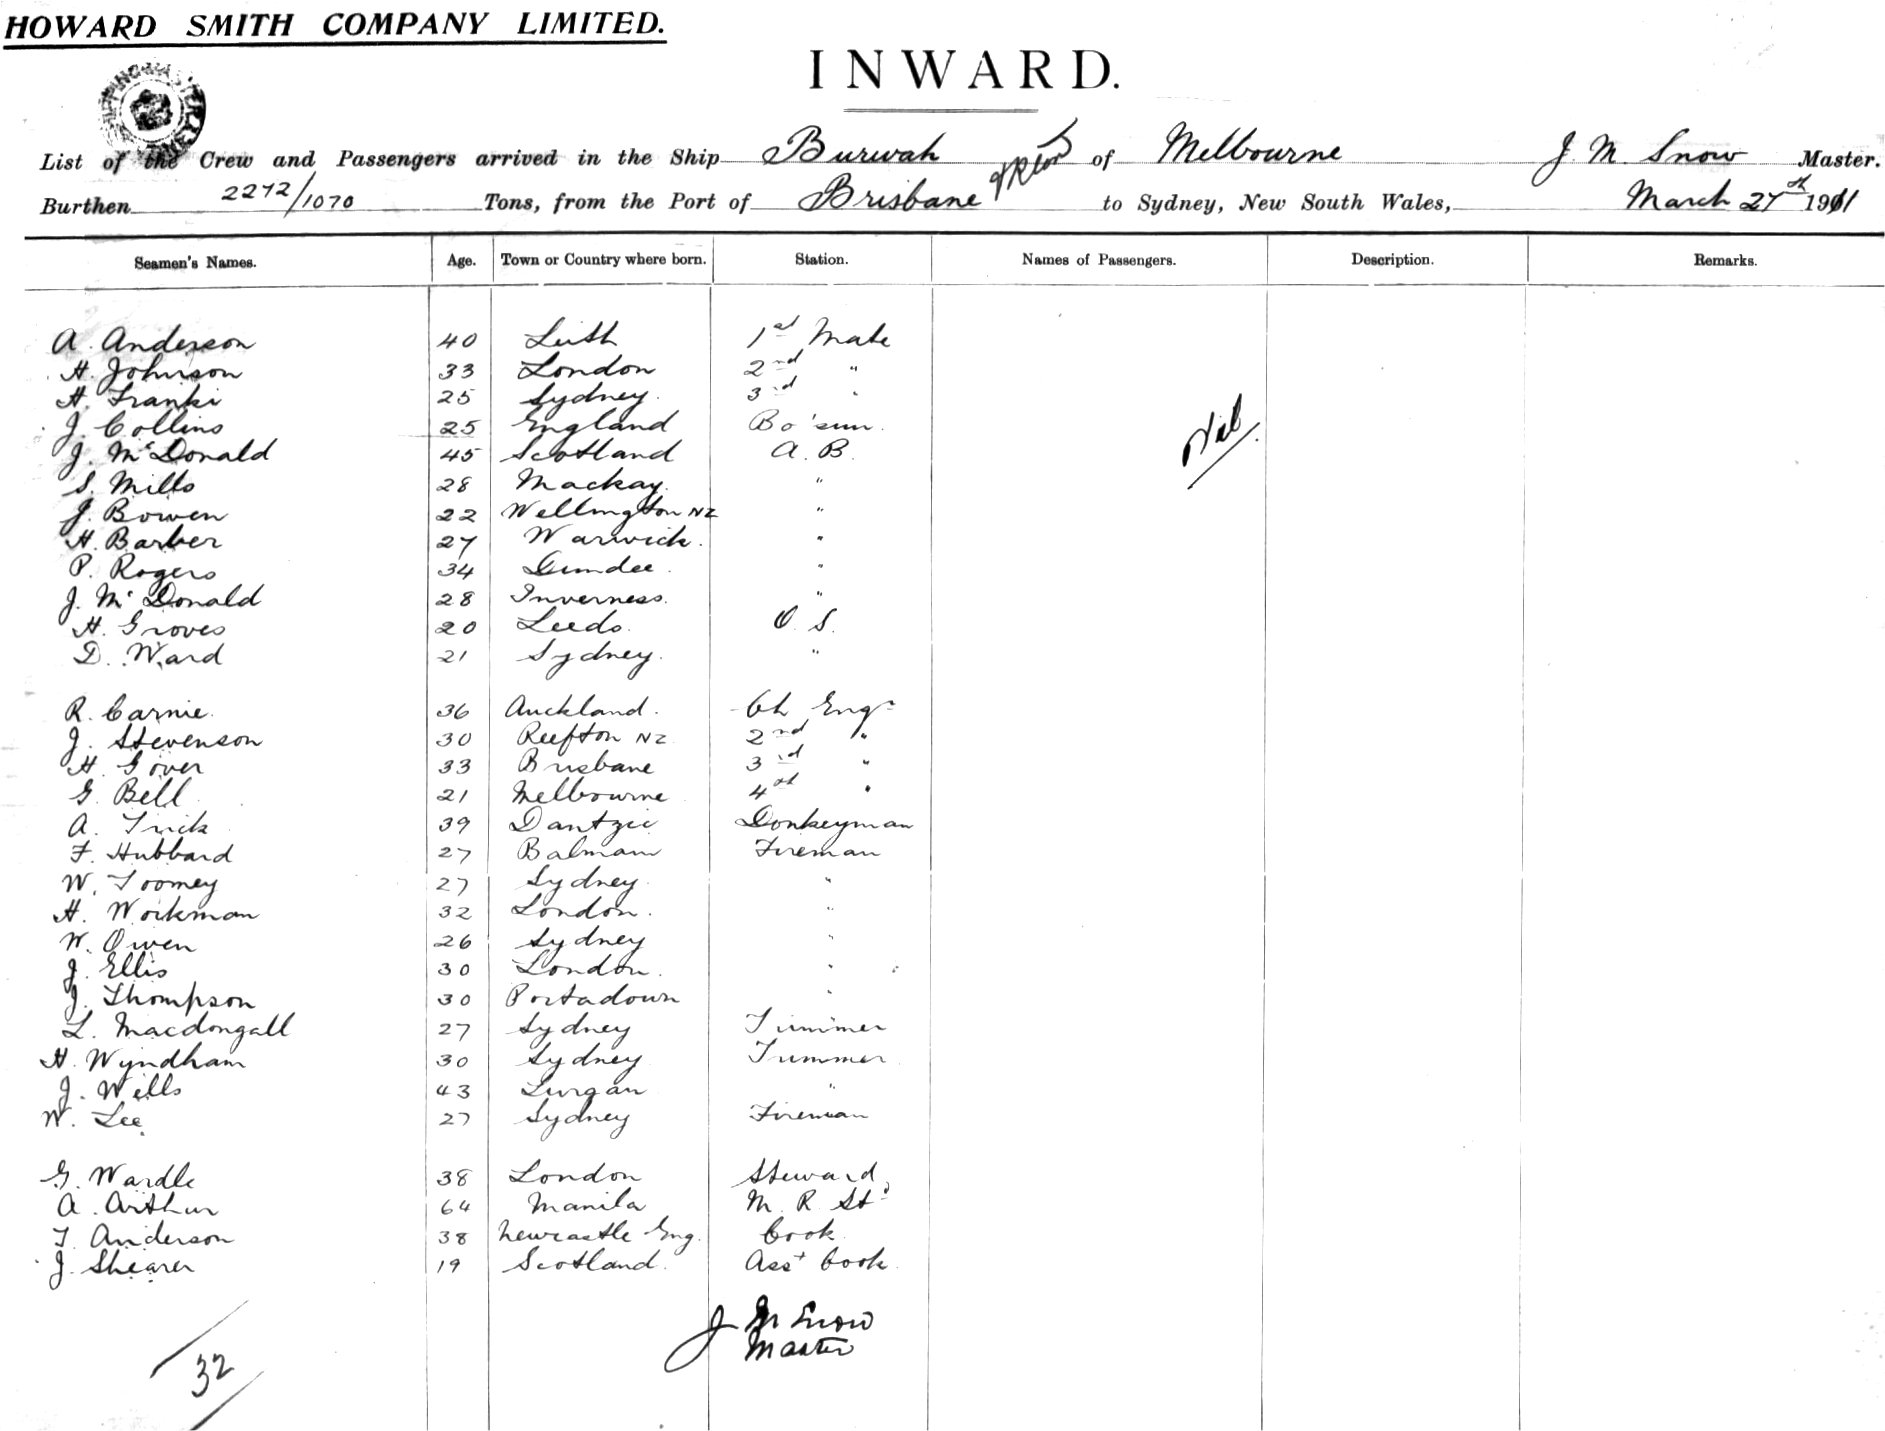 HOWARD SMITH COMPANY LIMITED.
INWARD.
List of the Crew and Passengers arrived in the Ship Burwah of Melbourne J. M. Snow Master.
Burthen 2272/1070 Tons, from the Port of Brisbane to Sydney, New South Wales, March 27th 1911
Seamen's Names. Age. Town or Country where born. Station. Names of Passengers. Description. Remarks.
A. Anderson 40 Leith 1st Mate
H. Johnson 33 London 2nd "
H. Franki 25 Sydney. 3rd "
J. Collins 25 England Bo'sun.
Nil
J. McDonald 45 Scotland A. B.
S. Mills 28 Mackay. "
J. Bowen 22 Wellington NZ "
H. Barber 27 Warwick. "
P. Rogers 34 Dundee. "
J. McDonald 28 Inverness. "
H. Groves 20 Leeds. O. S.
D. Ward 21 Sydney. "
R. Carnie. 36 Auckland. Ch Engr
J. Stevenson 30 Reefton NZ 2nd "
H. Gover 33 Brisbane 3rd "
G. Bell 21 Melbourne 4th "
A. 39 Dantzic Donkeyman
F. Hubbard 27 Balmain Fireman
W. Toomey 27 Sydney. "
H. Workman 32 London. "
W. Owen 26 Sydney "
J. Ellis 30 London. "
J. Thompson 30 Portadown "
L. Macdongall 27 Sydney Trimmer
H. Wyndham 30 Sydney Trimmer
J. Wells 43 Lurgan "
W. Lee 27 Sydney Fireman
G. Wardle 38 London Steward
A. Arthur 64 Manila M. R. Std
T. Anderson 38 Newcastle Eng. Cook
J. Shearer 19 Scotland. Asst Cook.
J M Snow
Master
32